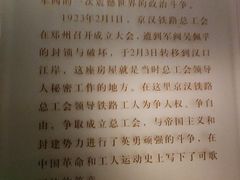 军阀的一次震撼世界的政治斗争。
1923年2月1日，京汉铁路总工会
在郑州召开成立大会，遭到军阀吴佩孚
的封锁与破坏，于2月3日转移到汉口
江岸，这座房屋就是当时总工会领导
人秘密工作的地方。在这里京汉铁路
总工会领导铁路工人为争人权、争自
由、争取成立总工会，与帝国主义和
封建势力进行了英勇顽强的斗争，在
中国革命和工人运动史上写下了可歌